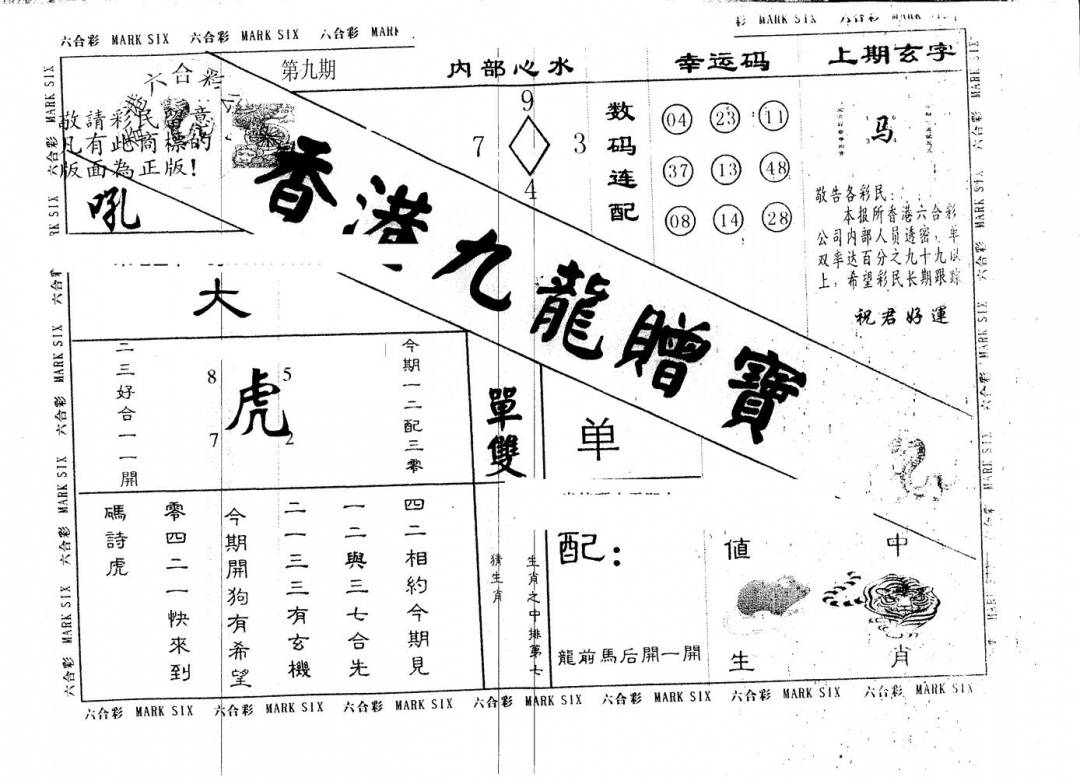 六合彩 MARK SIX 六合彩 MARK SIX 六合彩 MARK
彩 MARK SIX 六合彩 MARK SIX
六合彩
第九期
内部心水
幸运码
上期玄字
敬請彩民留意
凡有此商標的
版面為正版！
吼
香港九龍贈寶
9
7 3
4
数码连配
04 23 11
37 13 48
08 14 28
马
敬告各彩民：
本报所香港六合彩
公司内部人员透密，单
双率达百分之九十九以
上，希望彩民长期跟踪
祝君好運
大
二三好合一一開
8 5
虎
7 2
今期一二配三零
單雙
单
碼詩虎
零四二一快來到
今期開狗有希望
二一三三有玄機
一二與三七合先
四二相約今期見
猜生肖
生肖之中排第七
配：
龍前馬后開一開
值 中
生 肖
六合彩 MARK SIX 六合彩 MARK SIX 六合彩 MARK SIX 六合彩 MARK SIX 六合彩 MARK SIX 六合彩 MARK SIX 六合彩 MARK SIX